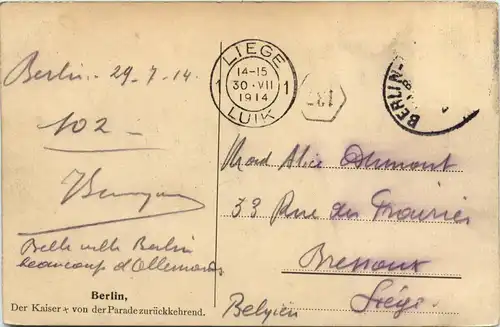 Berlin - 29-7-14
102 -
Belle ville Berlin
beaucoup d'Allemands
Berlin,
Der Kaiser x von der Parade zurückkehrend.
LIEGE
1 14-15 1
30 · VII
1914
LUIK
BERLIN
Mad Alice
33 Rue des
Bressoux
Liége
Belgien